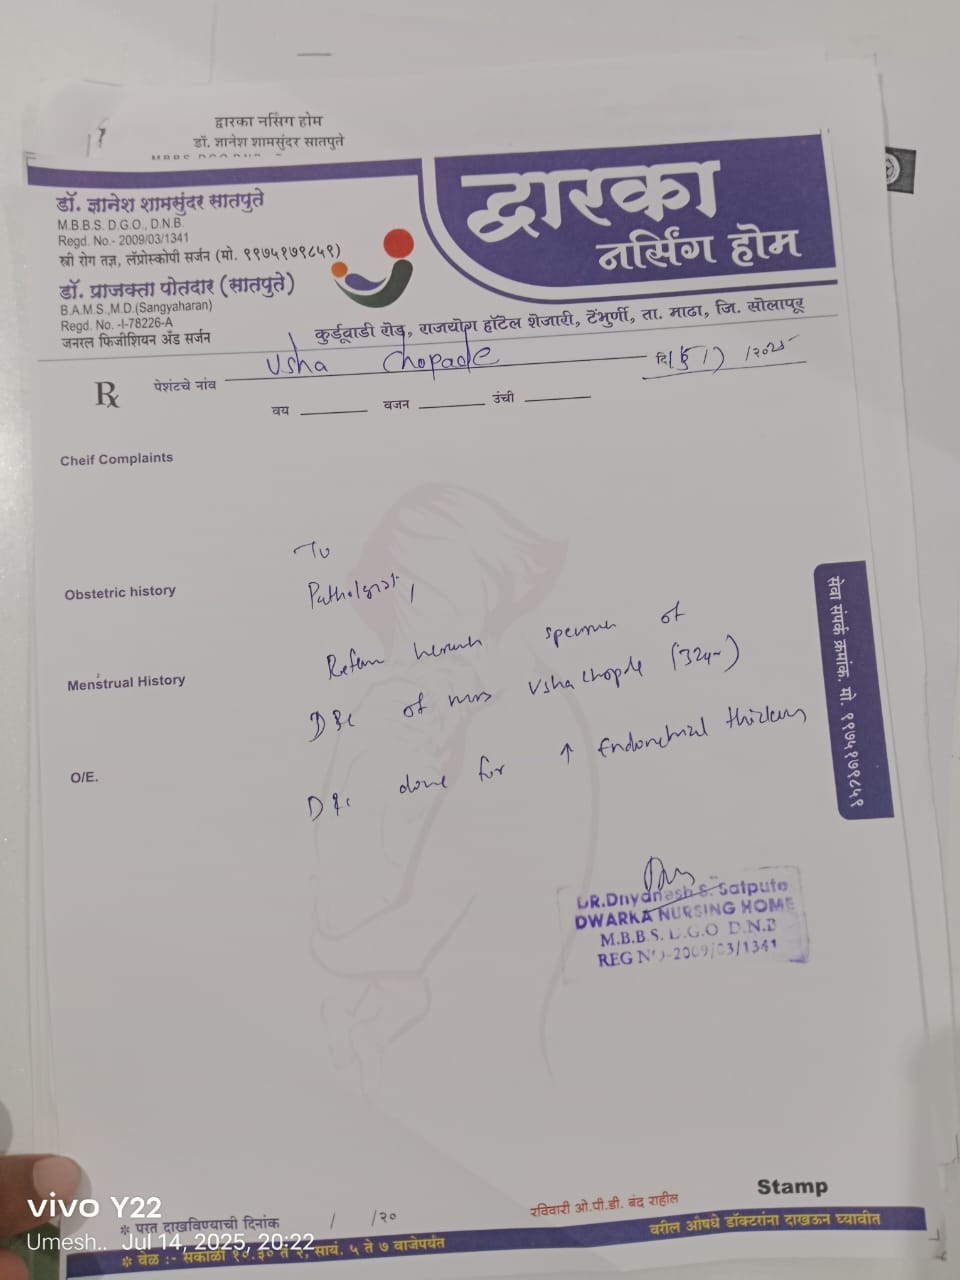 द्वारका नर्सिंग होम
डॉ. ज्ञानेश शामसुंदर सातपुते
डॉ. ज्ञानेश शामसुंदर सातपुते
M.B.B.S. D.G.O., D.N.B.
Regd. No.- 2009/03/1341
स्त्री रोग तज्ञ, लॅप्रोस्कोपी सर्जन (मो. ९९७५१७९८५१)
डॉ. प्राजक्ता पोतदार (सातपुते)
B.A.M.S.,M.D.(Sangyaharan)
Regd. No. -I-78226-A
जनरल फिजीशियन अँड सर्जन
द्वारका
नर्सिंग होम
कुर्डूवाडी रोड, राजयोग हॉटेल शेजारी, टेंभुर्णी, ता. माढा, जि. सोलापूर
Rx पेशंटचे नांव Usha Chopade दि /2025
वय वजन उंची
Cheif Complaints
To
Pathologist,
Obstetric history
specimen of
Menstrual History
D&C of Mrs Usha Chopde
O/E.
D&C done for ↑ Endometrial
सेवा संपर्क क्रमांक. मो. ९९७५१७९८५१
DR.Dnyanesh S. Satpute
DWARKA NURSING HOME
M.B.B.S. D.G.O D.N.B
REG NO-2009/03/1341
Stamp
* परत दाखविण्याची दिनांक / /२०
रविवारी ओ.पी.डी. बंद राहील
वरील औषधे डॉक्टरांना दाखऊन घ्यावीत
* वेळ :- सकाळी १०.३० ते २, सायं. ५ ते ७ वाजेपर्यंत
vivo Y22
Umesh.. Jul 14, 2025, 20:22